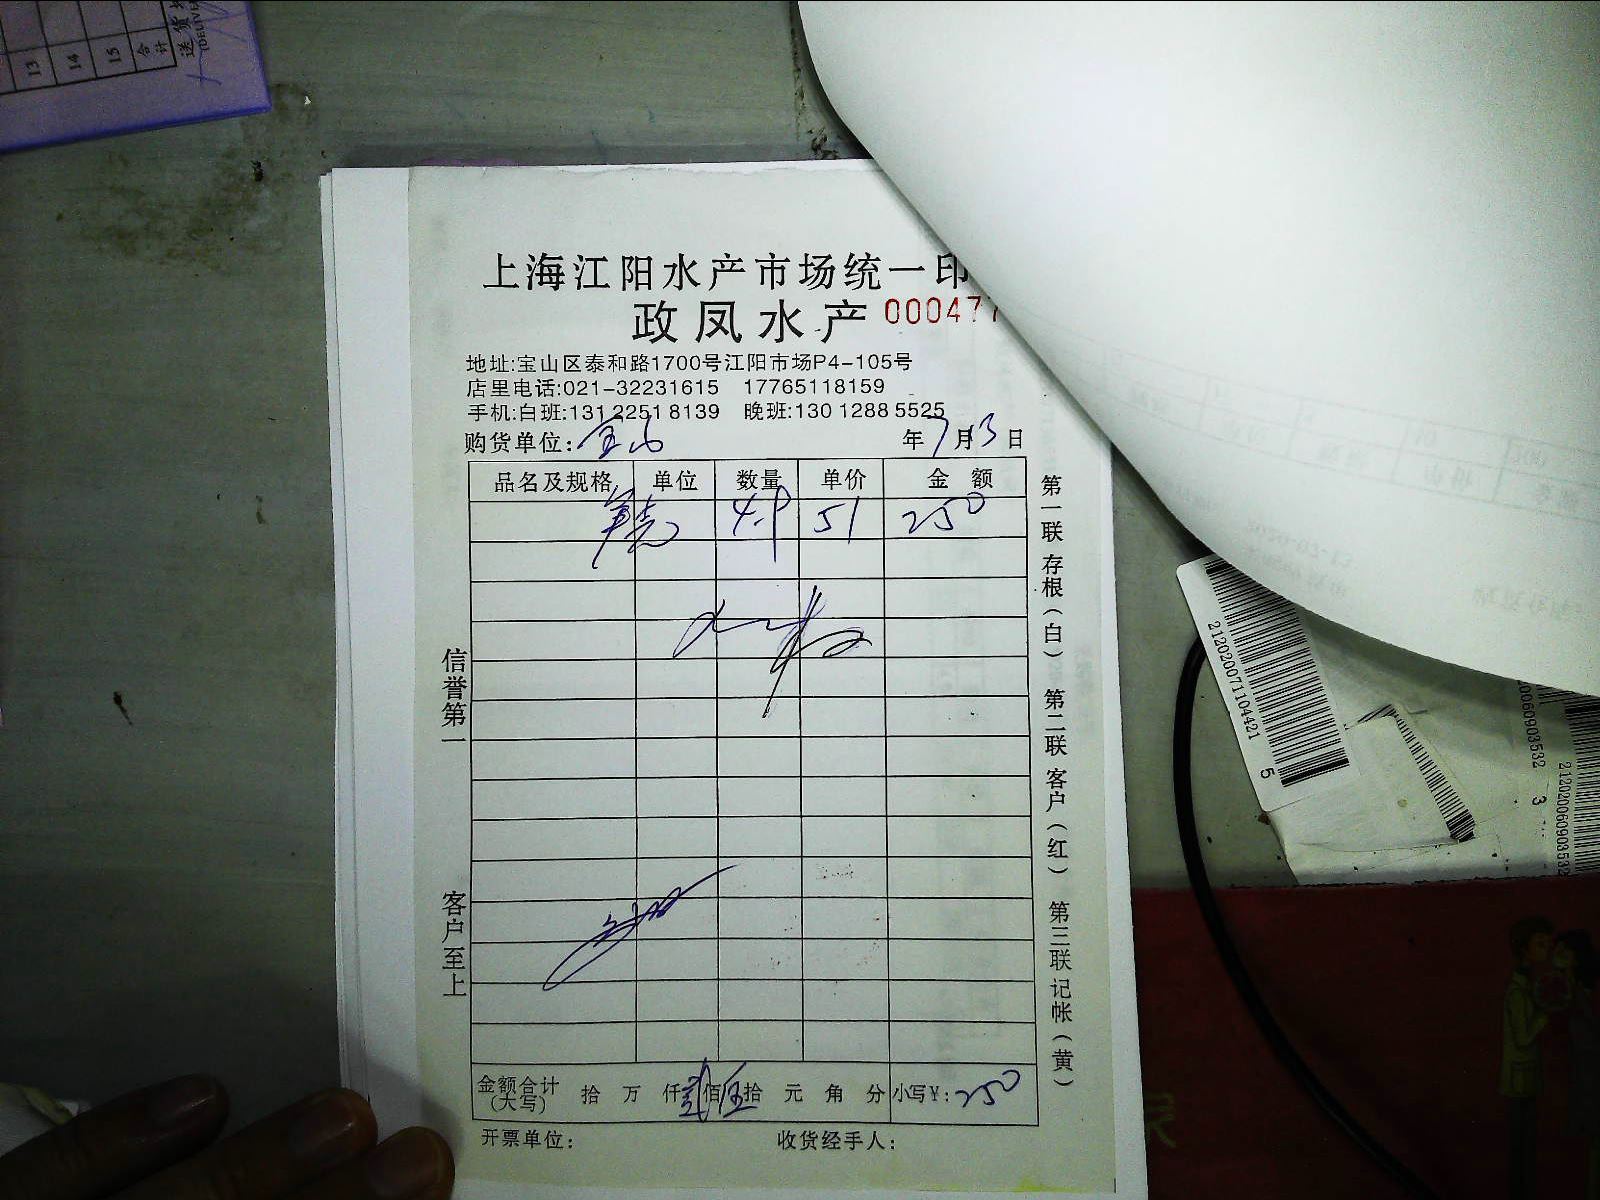 13
14
15
合计
上海江阳水产市场统一印
政凤水产 000477
地址:宝山区泰和路1700号江阳市场P4-105号
店里电话:021-32231615 17765118159
手机:白班:131 2251 8139 晚班:130 1288 5525
购货单位: 年7月13日
品名及规格 单位 数量 单价 金额
51 250
信誉第一
客户至上
第一联存根(白) 第二联客户(红) 第三联记帐(黄)
金额合计(大写) 拾 万 仟贰佰伍拾 元 角 分 小写¥:250
开票单位: 收货经手人:
212020071104421
5
212020060903532
3